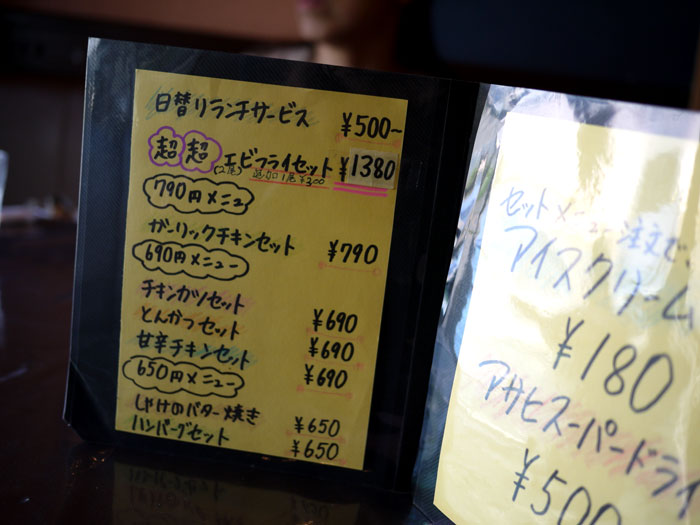 日替りランチサービス ¥500~
超超エビフライセット ¥1380
(2尾) 追加1尾¥300
790円メニュ
ガーリックチキンセット ¥790
690円メニュー
チキンカツセット ¥690
とんかつセット ¥690
甘辛チキンセット ¥690
650円メニュー
しゃけのバター焼き ¥650
ハンバーグセット ¥650
セットメニュー注文で
アイスクリーム
¥180
アサヒスーパードライ
¥500